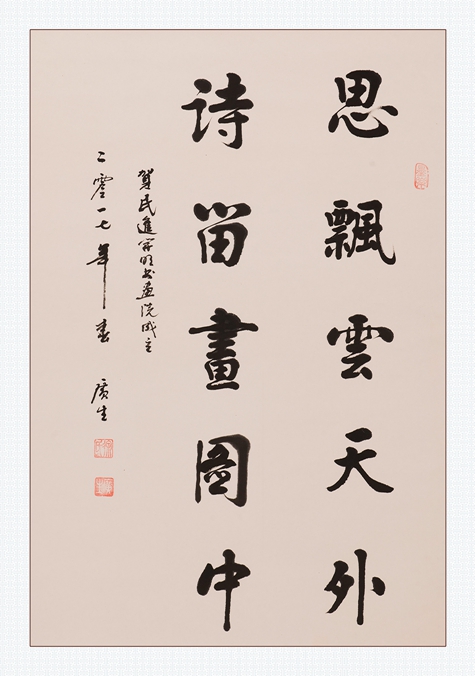 思飄雲天外
诗留畫圖中
賀民進开明书画院成立
二零一七年春 廣生